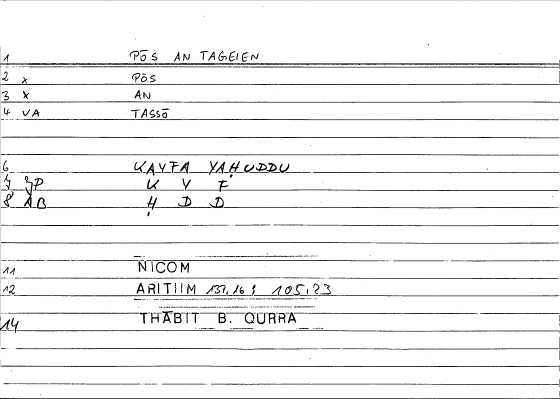 1 PŌS AN TAGEIEN
2 x PŌS
3 x AN
4 VA TASSŌ
6 KAYFA YAḤUDDU
7 JP K Y F
8 AB Ḥ D D
11 NICOM
12 ARITIIM 137,16 105,23
14 THĀBIT B. QURRA